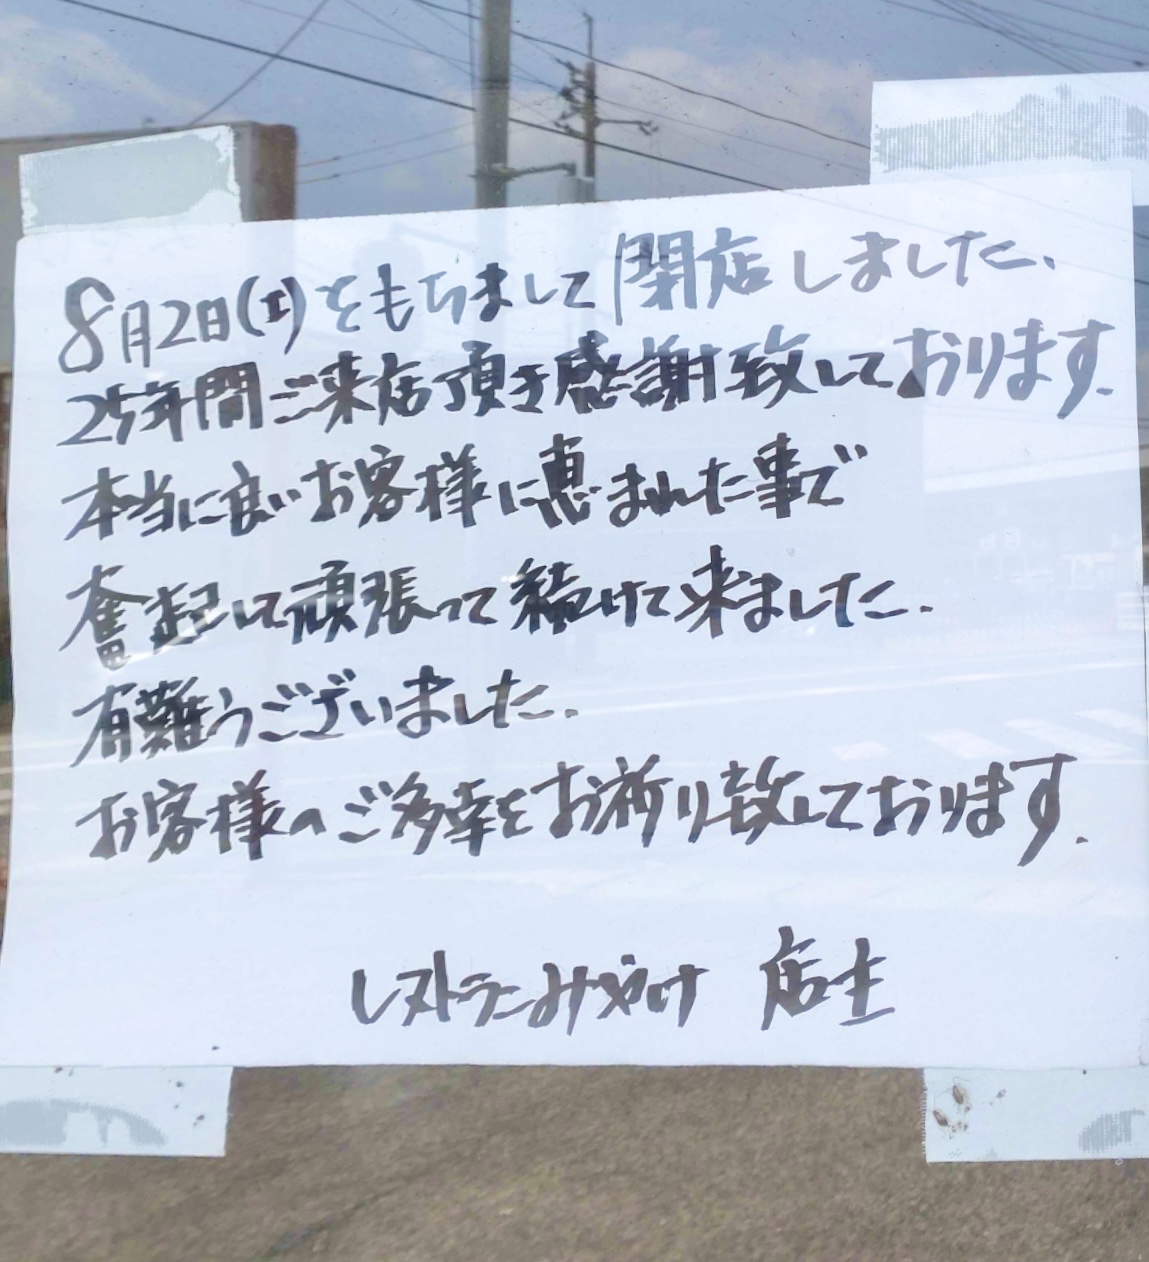 8月2日(土)をもちまして閉店しました、
25年間ご来店頂き感謝致しております.
本当に良いお客様に恵まれた事で
奮起して頑張って続けて来ました.
有難うございました.
お客様のご多幸をお祈り致しております.
レストランみやけ 店主